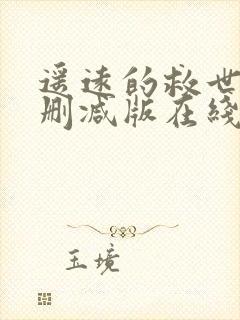 遥远的救世
删减版在线
玉境